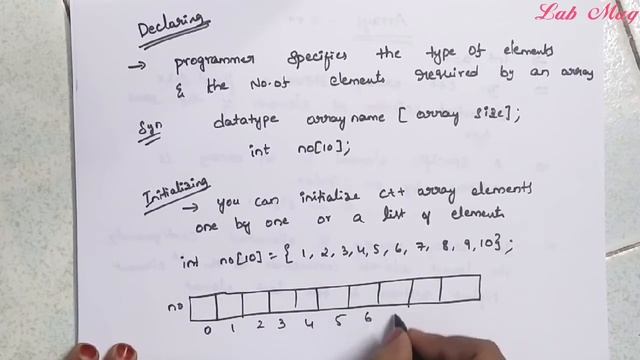 Lab Mug
Declaring
→ programmer specifies the type of elements
& the No.of elements required by an array
Syn datatype array name [ array size];
int no[10];
Initializing
→ you can initialize c++ array elements
one by one or a list of elements
int no[10] = { 1, 2, 3, 4, 5, 6, 7, 8, 9, 10} ;
no
0 1 2 3 4 5 6